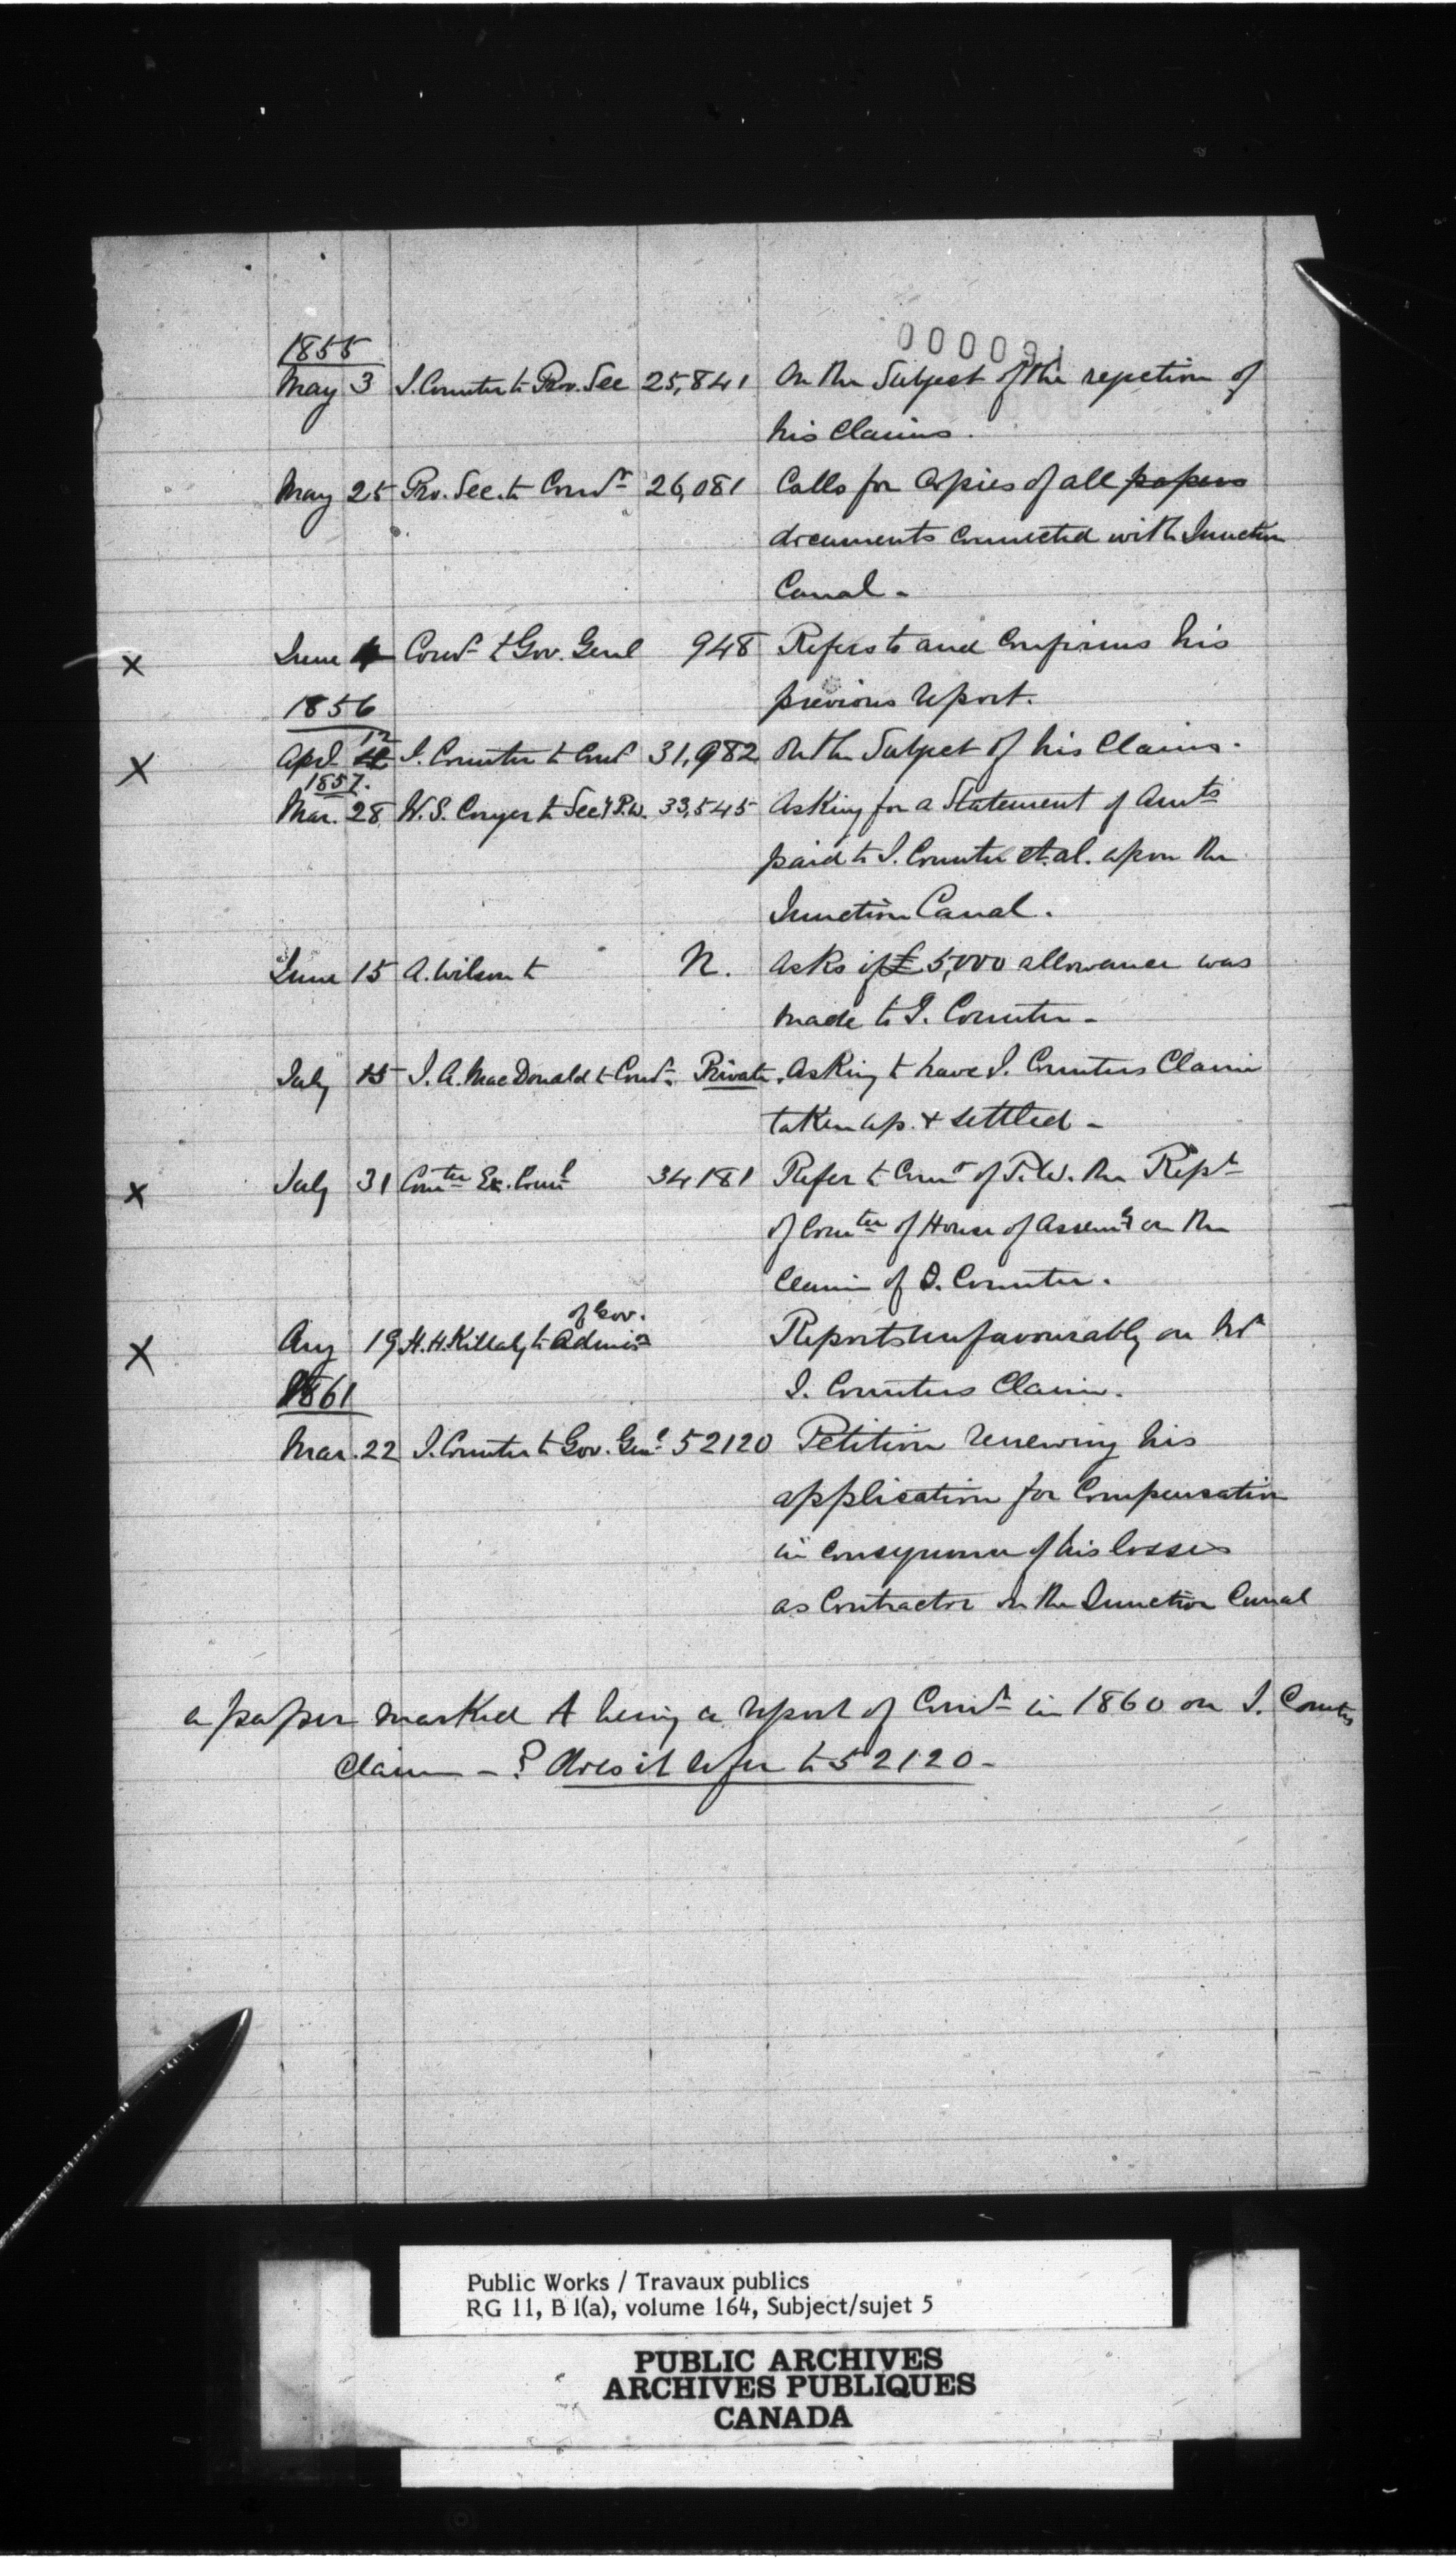 00009
1855
May 3 J. Counter to Prov. Sec 25,841 On the Subject of the rejection of
his Claims.
May 25 Pro. Sec. to Comrs 26,081 Calls for Copies of all papers
documents connected with Junction
Canal.
x June 4 Comrs to Gov. Genl 948 Refers to and Confirms his
1856
previous report.
x Apl. 12 J. Counter to Comrs 31,982 On the Subject of his Claims.
1857.
Mar. 28 W. S. Conger to Secy P.W. 33,545 Asking for a Statement of Amts
paid to J. Counter et. al. upon the
Junction Canal.
June 15 A. Wilson to N. Asks if £5,000 allowance was
made to J. Counter -
July 15 J. A. MacDonald to Comrs. Private. Asking to have J. Counters Claim
taken up. & settled -
x July 31 Comtee Ex. Councl 34181 Refer to Comrs of P.W. the Rept
of Comtee of House of Assemy on the
Claim of J. Counter.
of Gov.
x Aug 19 H. H. Killaly to Admisr Reports unfavourably on Mr
1861
J. Counters Claim.
Mar. 22 J. Counter to Gov. Genl 52120 Petition renewing his
application for Compensation
in consequence of his losses
as Contractor on the Junction Canal
a paper marked A being a report of Comrs in 1860 on J. Counters
Claim - ? does it refer to 52120 -
Public Works / Travaux publics
RG 11, B 1(a), volume 164, Subject/sujet 5
PUBLIC ARCHIVES
ARCHIVES PUBLIQUES
CANADA